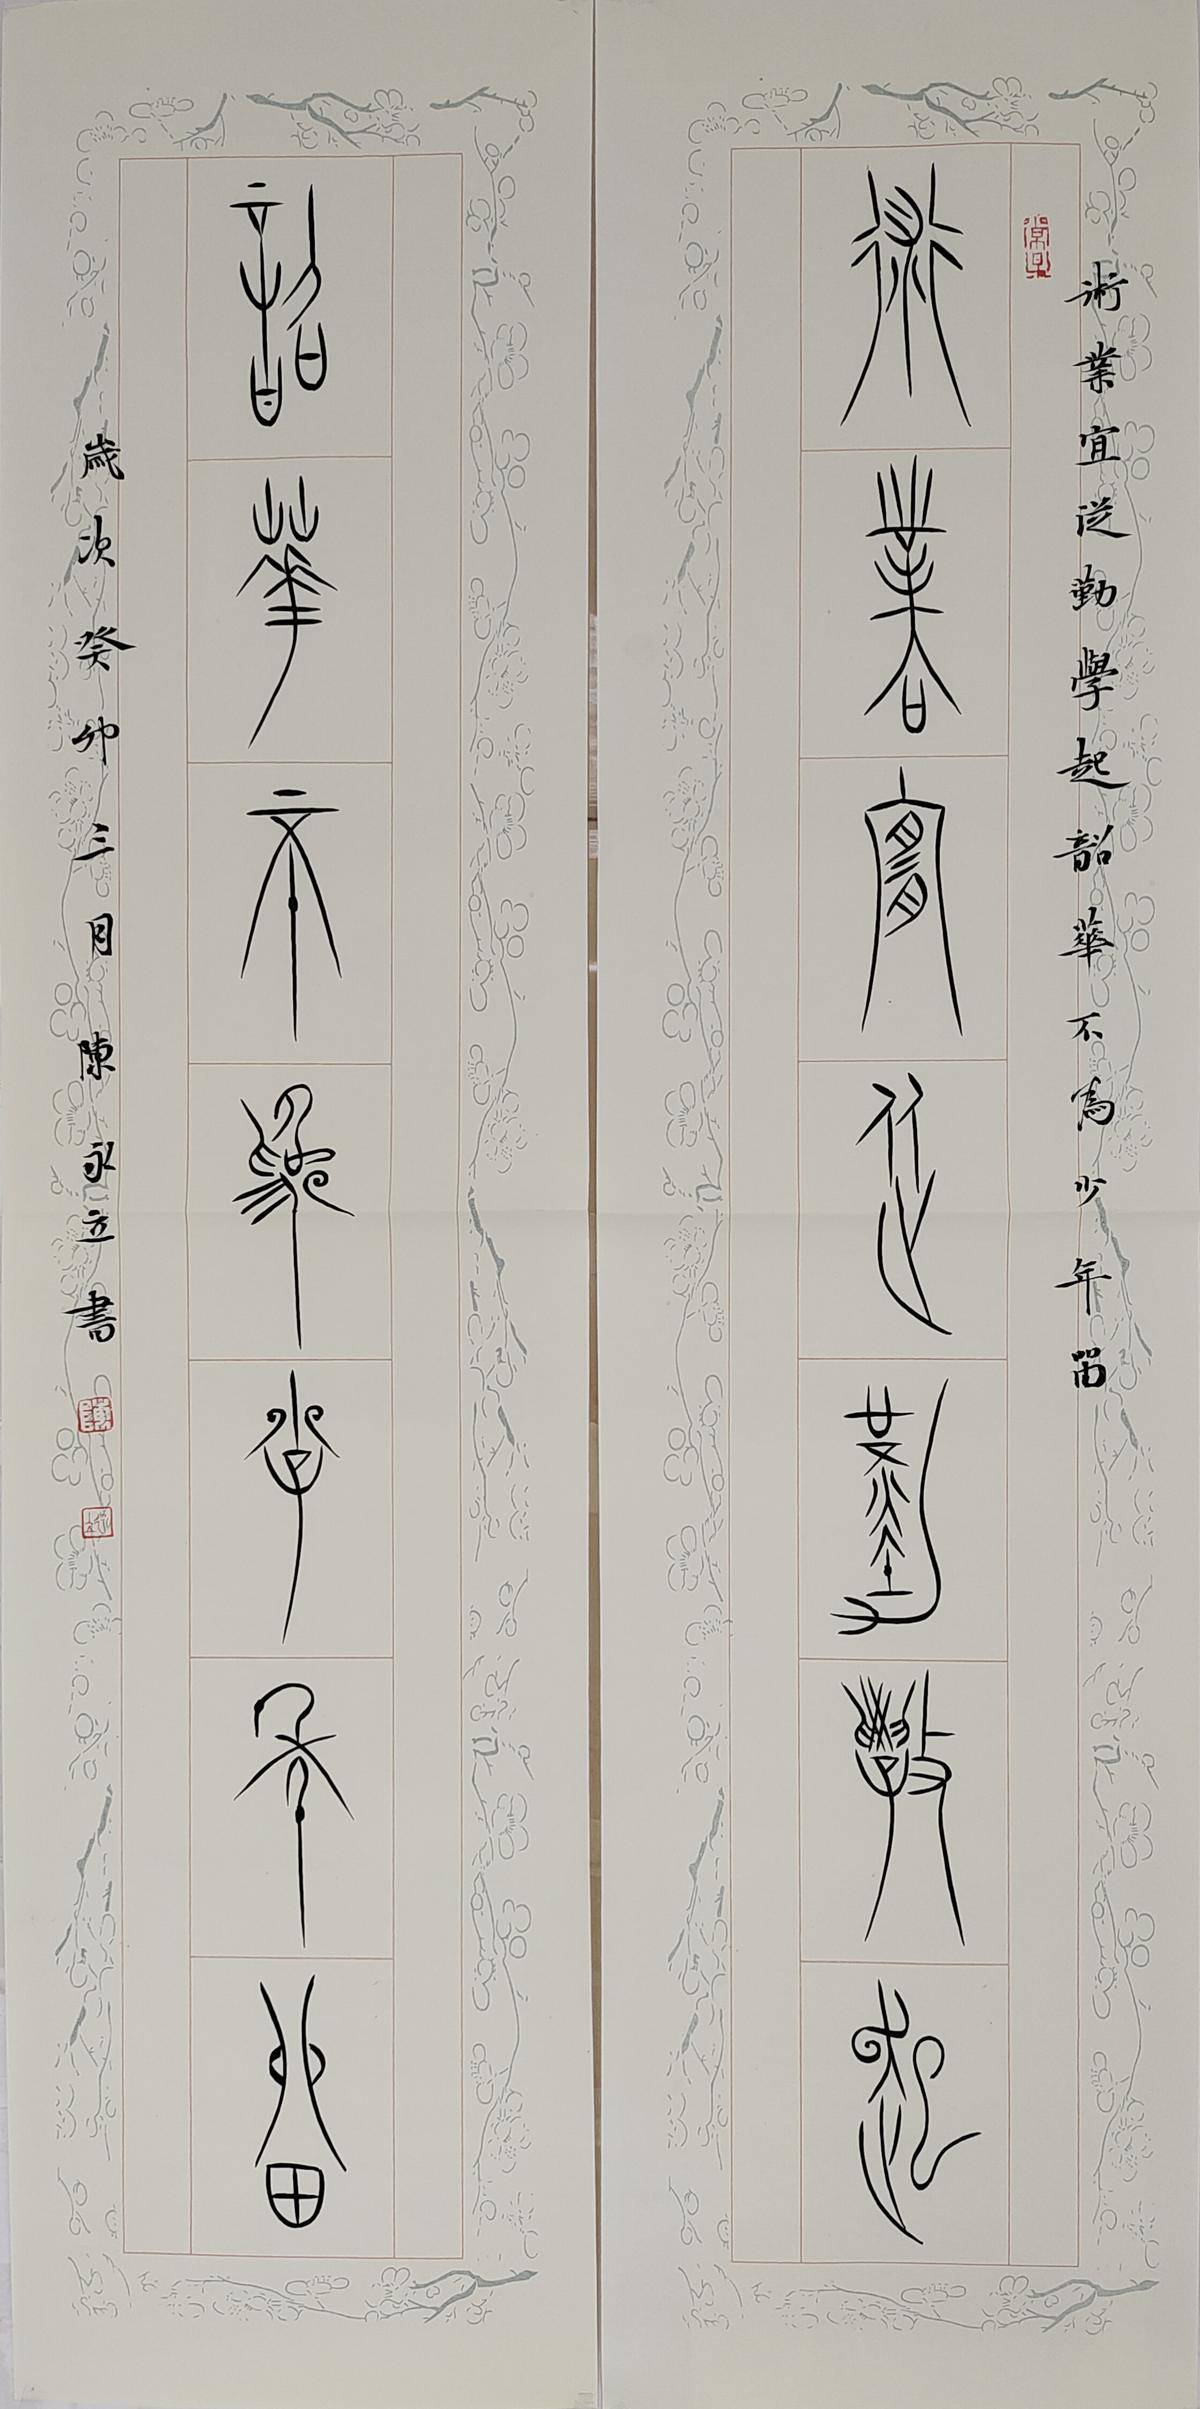 術業宜從勤學起韶華不為少年留
術業宜從勤學起
韶華不為少年留
歲次癸卯三月陳永立書